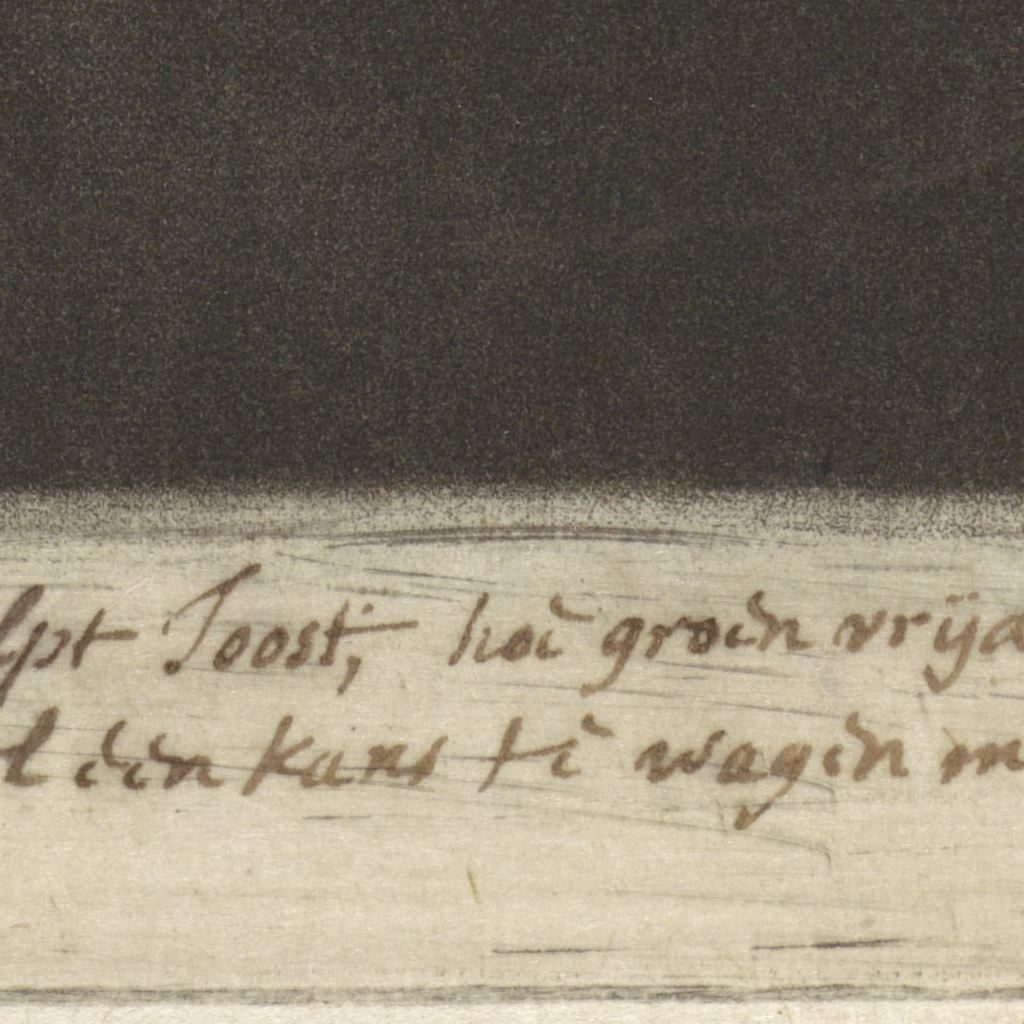 lpt Joost, hoe groen vrija
l een kans te wagen m